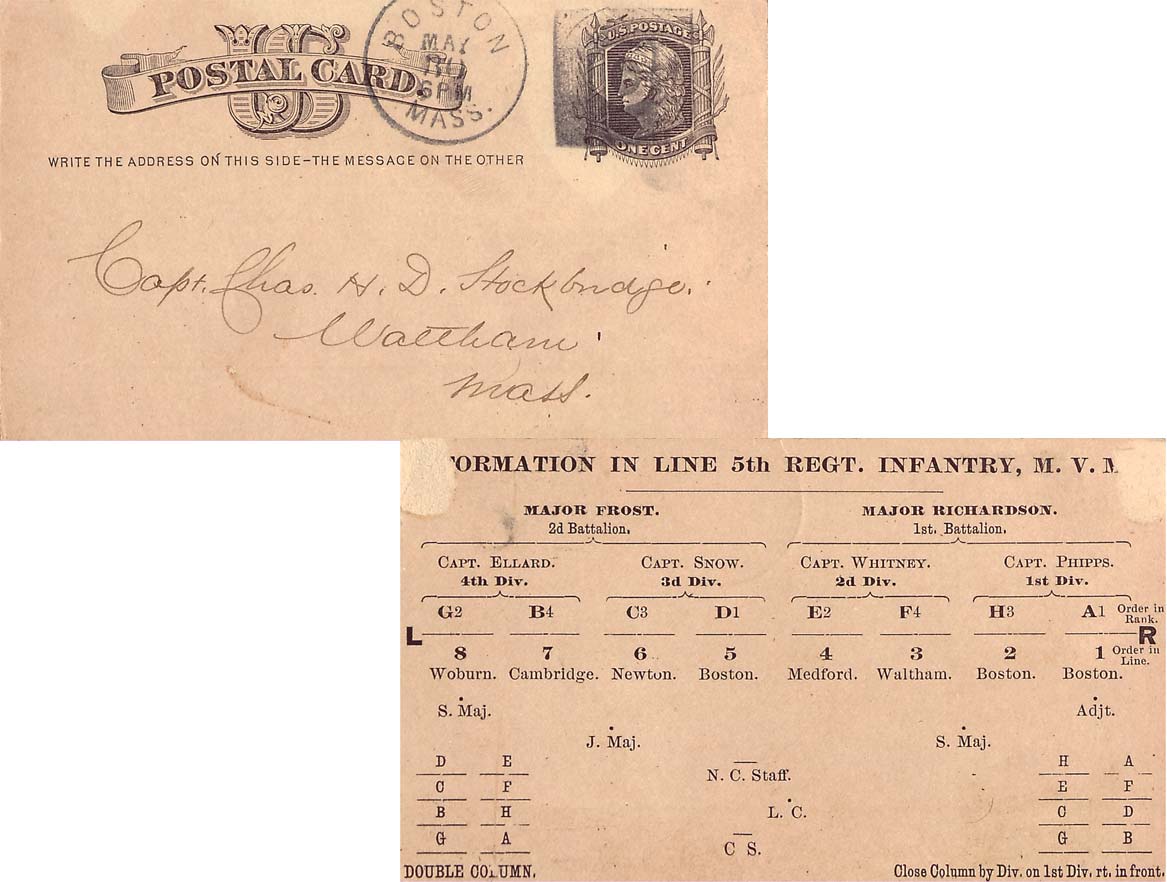 POSTAL CARD.
US
BOSTON
MAY
6 PM
MASS.
U.S. POSTAGE
ONE CENT
WRITE THE ADDRESS ON THIS SIDE–THE MESSAGE ON THE OTHER
Capt. Chas. H. D. Stockbridge.
Waltham
Mass.
FORMATION IN LINE 5th REGT. INFANTRY, M. V. M
MAJOR FROST. MAJOR RICHARDSON.
2d Battalion. 1st. Battalion.
CAPT. ELLARD. CAPT. SNOW. CAPT. WHITNEY. CAPT. PHIPPS.
4th Div. 3d Div. 2d Div. 1st Div.
G2 B4 C3 D1 E2 F4 H3 A1 Order in Rank.
L R
8 7 6 5 4 3 2 1 Order in Line.
Woburn. Cambridge. Newton. Boston. Medford. Waltham. Boston. Boston.
S. Maj. Adjt.
J. Maj. S. Maj.
D E H A
N. C. Staff.
C F E F
B H L. C. C D
G A G B
C S.
DOUBLE COLUMN. Close Column by Div. on 1st Div. rt. in front.